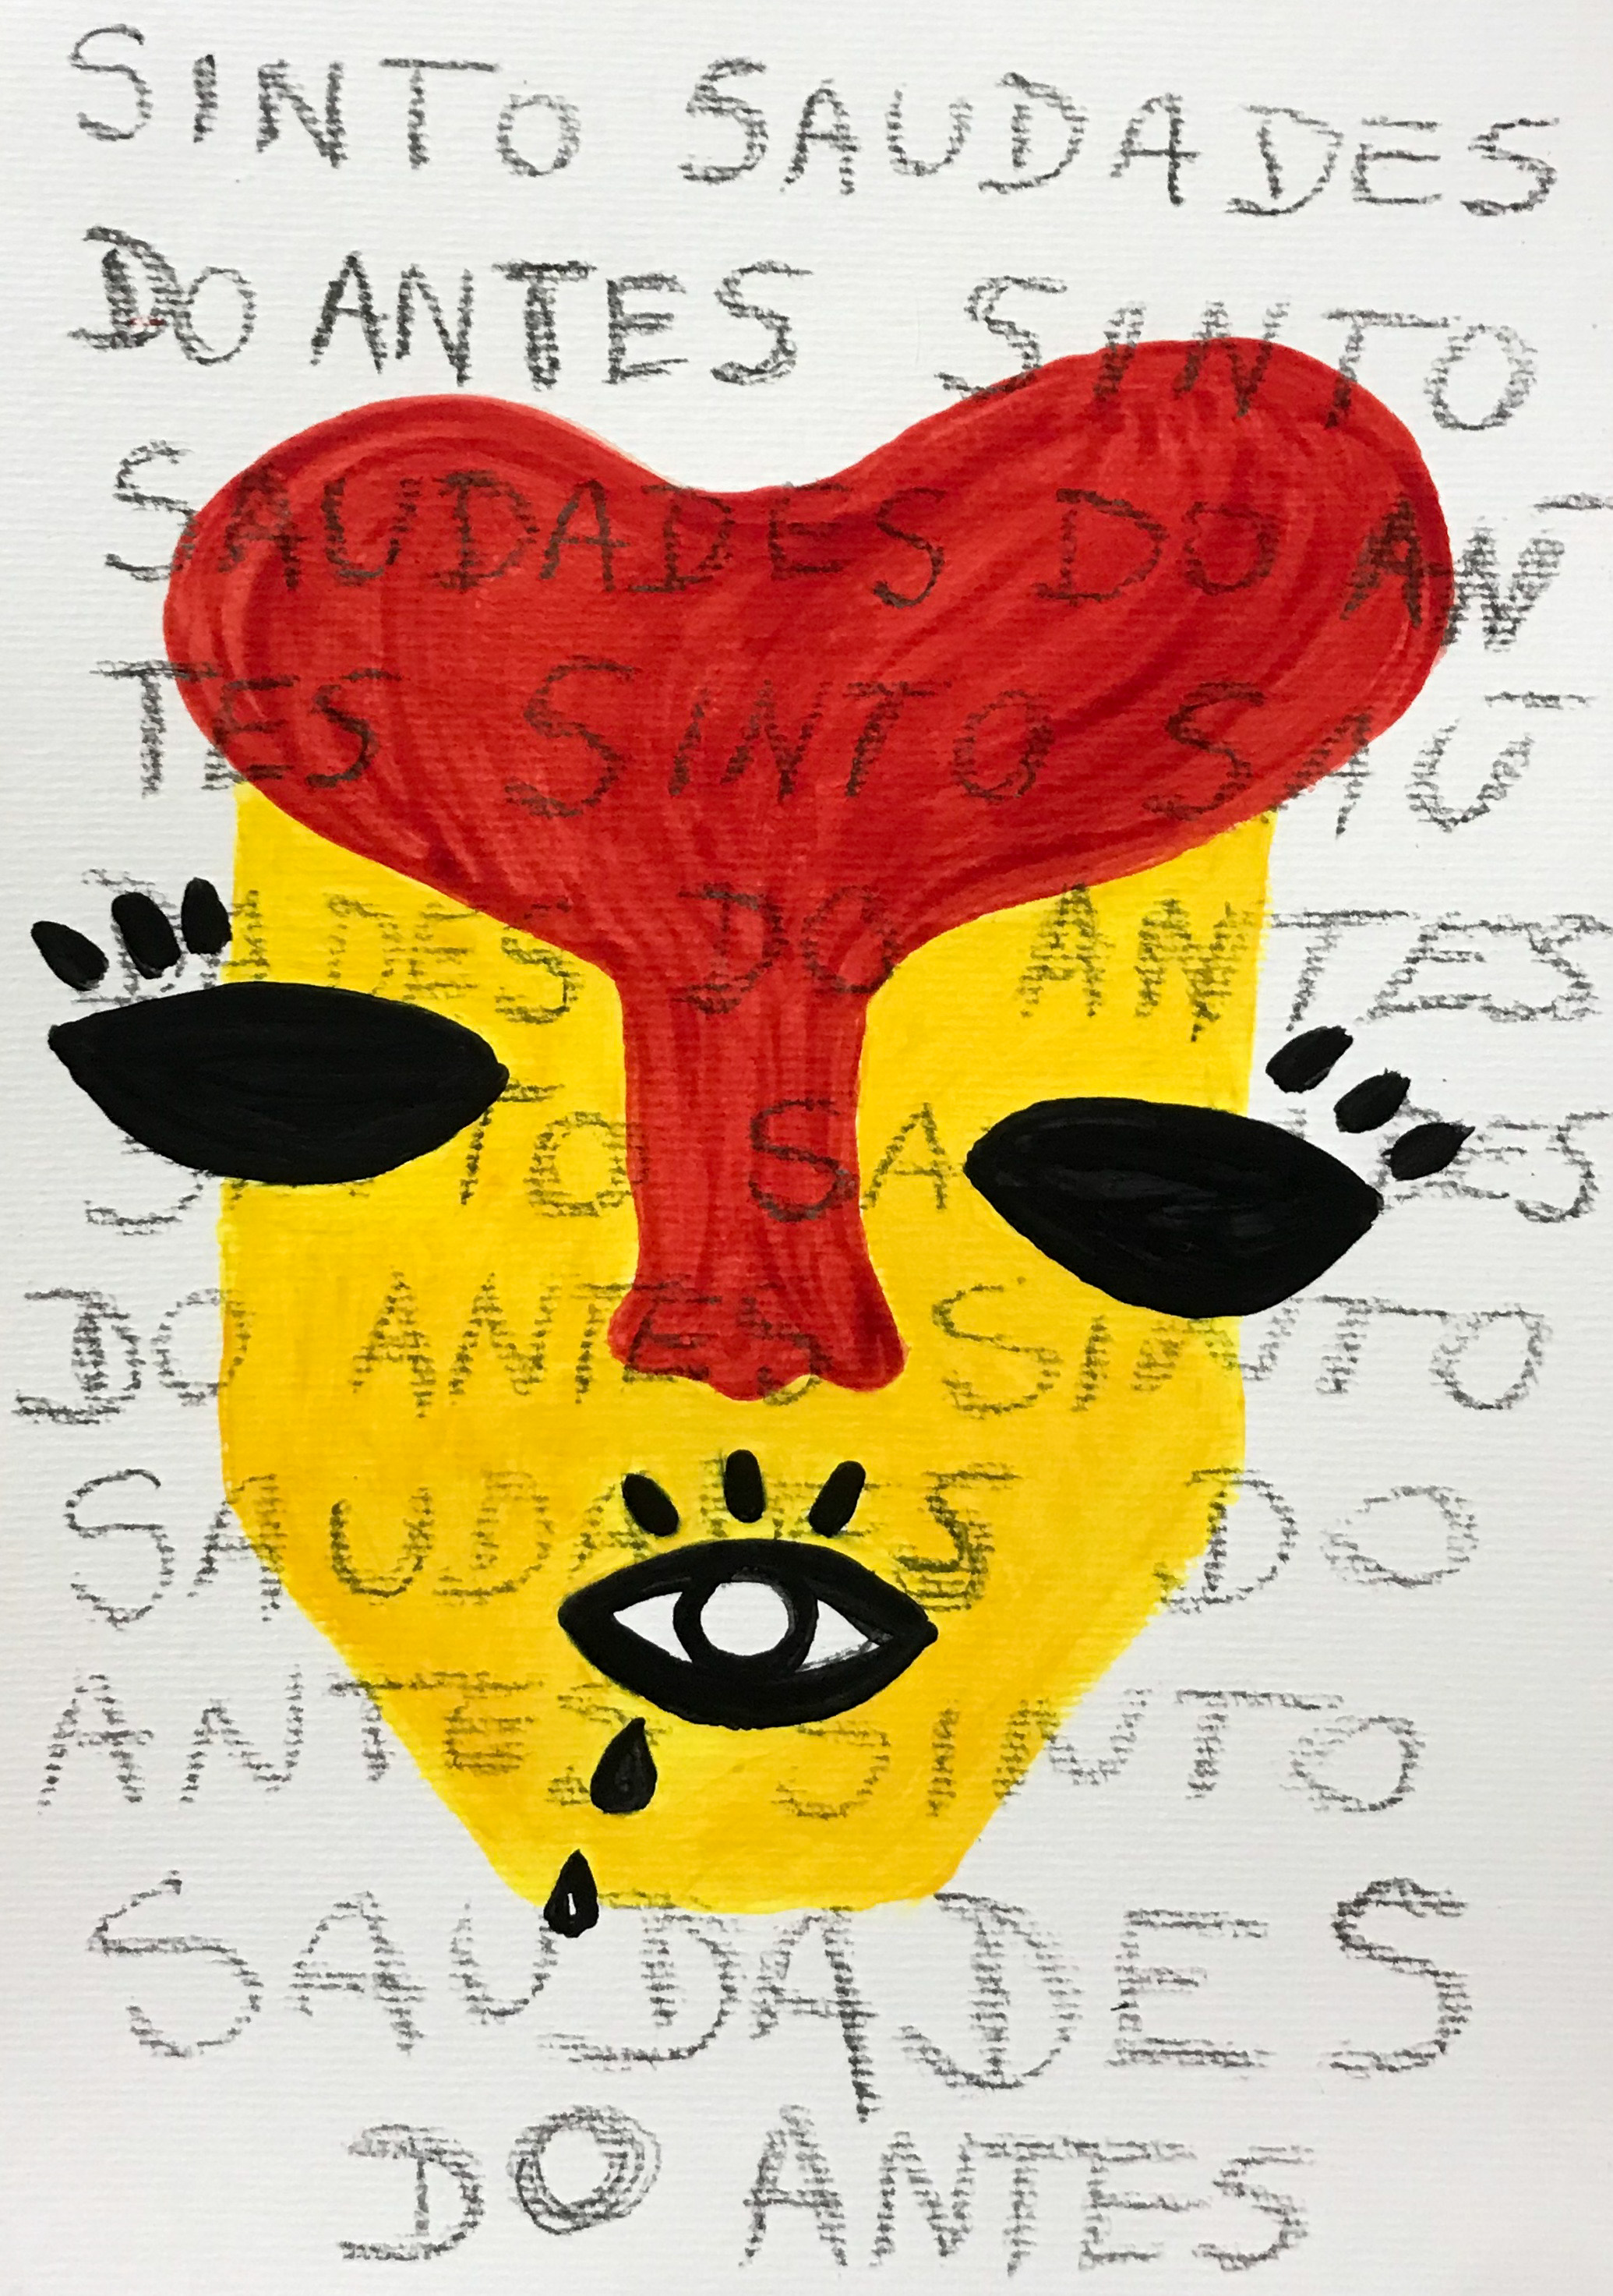 SINTO SAUDADES
DO ANTES SINTO
SAUDADES DO ANT
TES SINTO SAU
DES DO ANTES
TO SA
DO ANTES SINTO
SAUDADES DO
ANTES SINTO
SAUDADES
DO ANTES